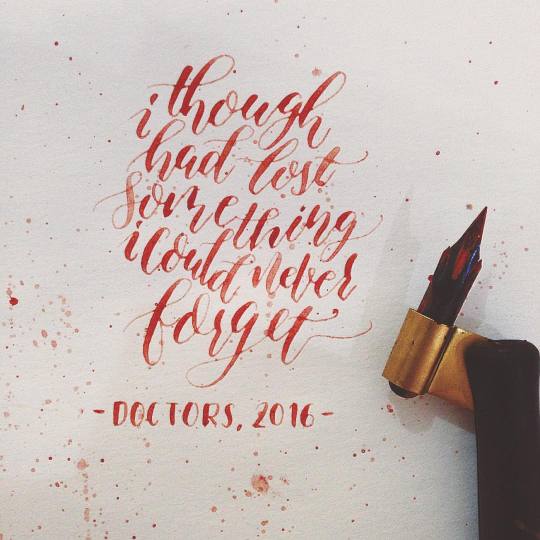 i though
had lost
something
i could never
forget
- DOCTORS, 2016 -